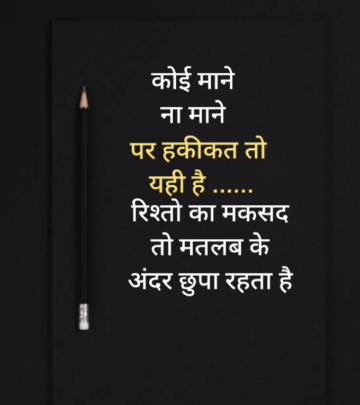 कोई माने
ना माने
पर हकीकत तो
यही है ......
रिश्तो का मकसद
तो मतलब के
अंदर छुपा रहता है